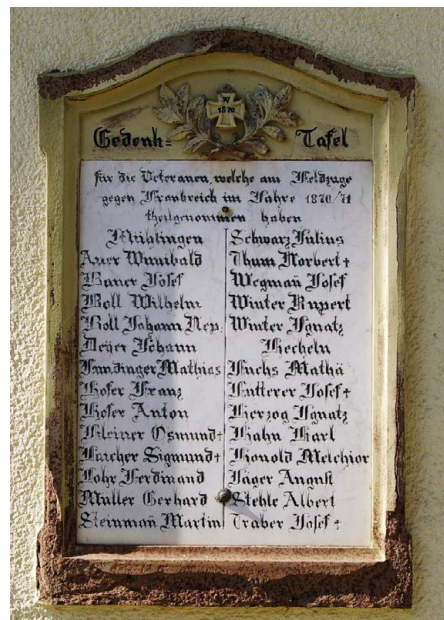 W
1870
Gedenk= Tafel
für die Veteranen, welche am Feldzuge
gegen Frankreich im Jahre 1870/71
theilgenommen haben
Mühlingen
Auer Wunibald
Bauer Josef
Boll Wilhelm
Boll Johann Nep.
Deyer Johann
Mathias
Hofer Franz
Hofer Anton
Kleiner Osmund†
Larcher Sigmund†
Lohr Ferdinand
Müller Gerhard
Steinmañ Martin
Schwarz Julius
Thum Norbert†
Wegmañ Josef
Winter Rupert
Winter Ignatz
Hecheln
Fuchs Mathä
Futterer Josef†
Herzog Ignatz
Hahn Karl
Honold Melchior
Jäger August
Stehle Albert
Traber Josef†